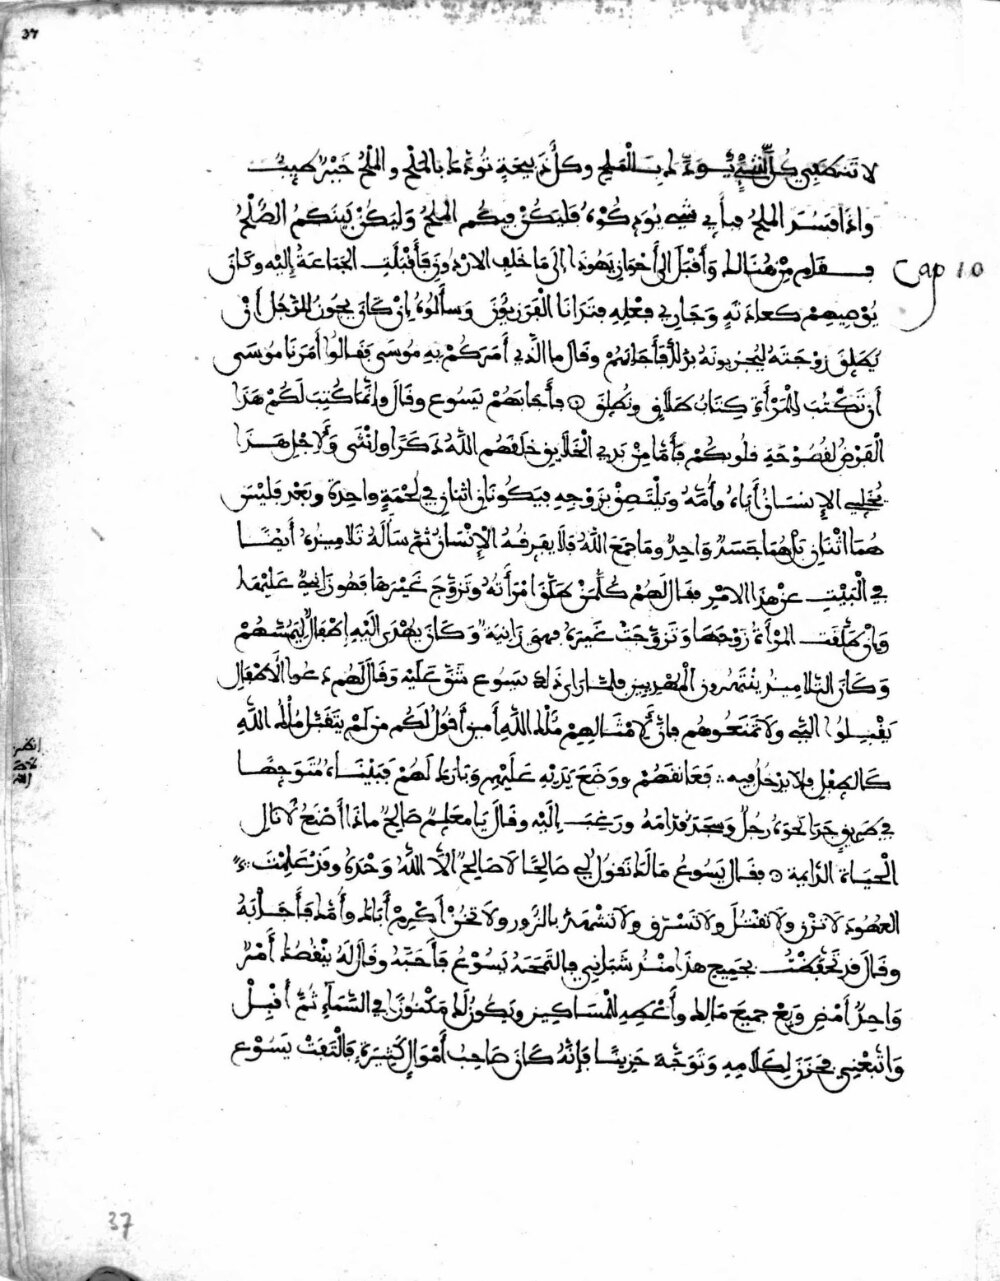 37
لا تنطفي كل شيء يودك بالملح وكل ذبيحة تودك بالملح والملح خير طيب
واذا فسد الملح فبأي شيء يودكوه فليكن فيكم الملح وليكن بينكم الصلح
Cap 10
فقام من هنالك وأقبل الى أحواز يهوذا الى ما خلف الاردون فأقبلت الجماعة إليه وكان
يوصيهم كعادته وجاري فعله فتدانا القرزيون وسألوه إن كان يجوز للرجل أن
يطلق زوجته ليجربونه بذلك فأجابهم وقال ما الذي أمركم به موسى فقالوا أمرنا موسى
أن تكتب للمرأة كتاب طلاق وتطلق فأجابهم يسوع وقال وانما كتب لكم هذا
الفرض لفصوحة قلوبكم فأما من بدي الخلايق خلقهم الله ذكرا وانثى ولاجل هذا
يخلي الإنسان أباه وأمه ويلتصق بزوجه فيكونان اثنان في لحمة واحدة وبعد فليس
هما اثنان بل هما جسد واحد وما جمع الله فلا يفرقه الإنسان ثم سأله تلاميذه أيضا
في البيت عن هذا الامر فقال لهم كل من طلق امرأته وتزوج غيرها فهو زاني عليها
وان طلقت المرأة زوجها وتزوجت غيره فهي زانية وكان يهدى اليه إطفال ليمسهم
وكان التلاميذ ينتهرون المهديين فلما رأى ذلك يسوع شق عليه وقال لهم دعوا الأطفال
يقبلوا الي ولا تمنعوهم فان لامثالهم ملك الله أمين أقول لكم من لم يتقبل ملك الله
كالطفل فلا يدخل فيه فعانقهم ووضع يديه عليهم وبارك لهم فبيناه متوجها
في طريق جرا نحوه رجل وسجد قدامه ورغب إليه وقال يا معلم صالح ماذا أصنع لأنال
الحياة الدايمة فقال يسوع ما لك تقول لي صالحا لا صالح الا الله وحده وقد علمت
العهود لا تزن ولا تقتل ولا تسرق ولا تشهد بالزور ولا تخن أكرم أباك وأمك فأجابه
وقال قد تحفظت بجميع هذا منذ شبابي فالتمحه يسوع فأحبه وقال له ينقصك أمر
واحد أمض وبع جميع مالك وأعطه للمساكين ويكون لك مكنوزا في السماء ثم أقبل
واتبعني فحزن لكلامه وتوجه حزينا فإنه كان صاحب أموال كثيرة فالتفت يسوع
37